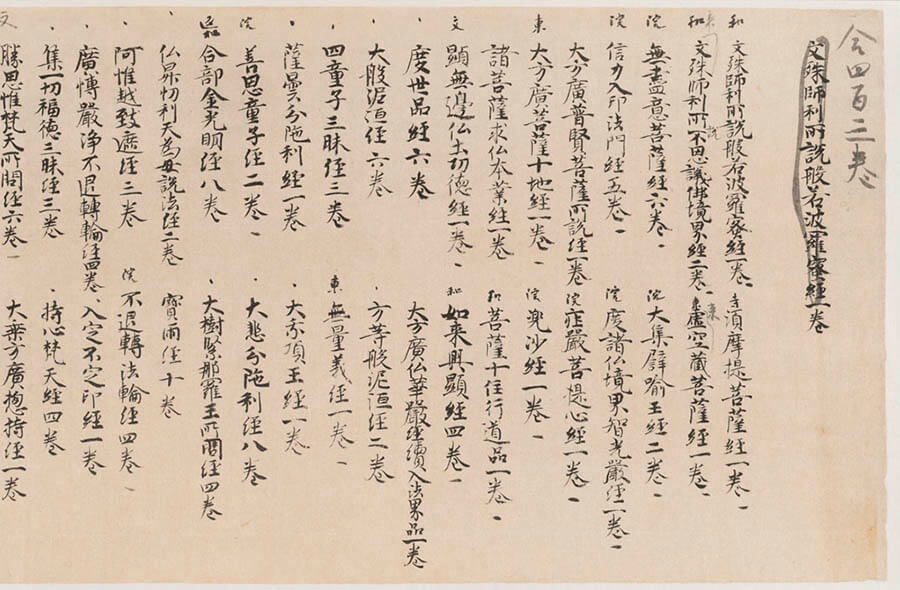 合四百二巻
文殊師利所説般若波羅蜜経一巻
和 文殊師利所説般若波羅蜜経一巻 寺 須摩提菩薩経一巻
和 文殊師利所説不思議仏境界経二巻 東 虚空蔵菩薩経一巻
院 無盡意菩薩経六巻 院 大集譬喩王経二巻
院 信力入印法門経五巻 院 度諸仏境界智光厳経一巻
大方廣普賢菩薩所説経一巻 院 荘厳菩提心経一巻
東 大方廣菩薩十地経一巻 院 兜沙経一巻
諸菩薩求仏本業経一巻 和 菩薩十住行道品一巻
文 顕無邊仏土功徳経一巻 和 如来興顕経四巻
度世品経六巻 大方廣仏華厳経續入法界品一巻
大般泥洹経六巻 方等般泥洹経二巻
四童子三昧経三巻 東 無量義経一巻
薩曇分陁利経一巻 大方頂王経一巻
院 善思童子経二巻 大悲分陁利経八巻
合部金光明経八巻 大樹緊那羅王所問経四巻
仏昇忉利天為母説法経二巻 寶雨経十巻
阿惟越致遮経三巻 院 不退轉法輪経四巻
廣博嚴浄不退轉輪経四巻 入定不定印経一巻
集一切福徳三昧経三巻 持心梵天経四巻
文 勝思惟梵天所問経六巻 大乗方廣惣持経一巻